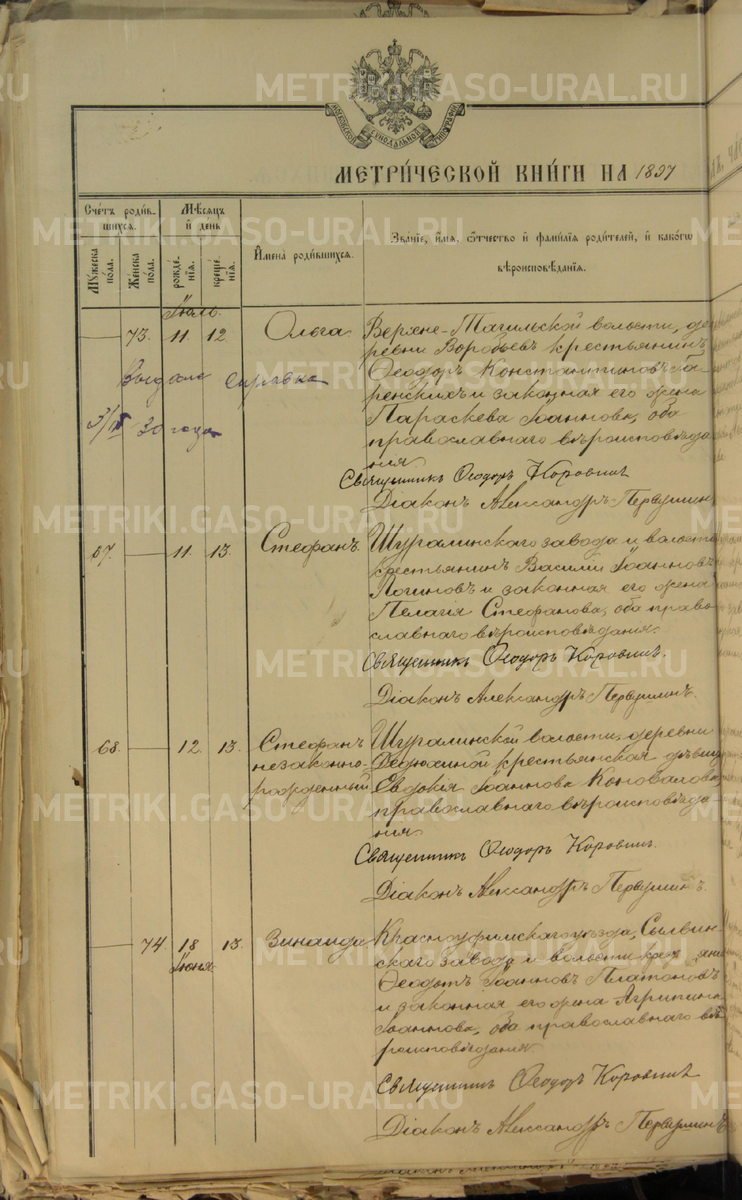 МОСКОВСКОЙ СѴНОДАЛЬНОЙ ТИПОГРАФІИ
МЕТРИ́ЧЕСКОЙ КНИ́ГИ НА 1897
Сче́тъ роди́в-
шихся.
Мѣ́сяцъ
и҆ де́нь
Мꙋ́жеска
по́ла.
Же́нска
по́ла.
рожде́-
нїѧ.
креще́-
нїѧ.
И҆мена̀ роди́вшихся.
Зва́нїе, и҆́мѧ, ѻ҆́тчество и҆ фами́лїѧ роди́телей, и҆ како́гѡ
вѣроисповѣ́данїѧ.
Іюль.
— 73. 11. 12 Ольга Верхне-Тагильской волости, де-
ревни Воробьевъ крестьянинъ
Ѳеодоръ Константиновъ
и законная его жена
Параскева Іоаннова, оба
православнаго вѣроисповѣда-
нія.
Выдана справка
30 года
Священникъ Ѳеодоръ Коровинъ
Діаконъ Александръ Первушинъ
67. — 11. 13. Стефанъ. Шуралинскаго завода и волости
крестьянинъ Василій Іоанновъ
Логиновъ и законная его жена
Пелагія Стефанова, оба право-
славнаго вѣроисповѣданія.
Священникъ Ѳеодоръ Коровинъ.
Діаконъ Александръ Первушинъ.
68. — 12. 13. Стефанъ Шуралинской волости, деревни
незаконно- Федюсиной крестьянская дѣвица
рожденный Евдокія Іоаннова Коновалова,
православнаго вѣроисповѣда-
нія.
Священникъ Ѳеодоръ Коровинъ.
Діаконъ Александръ Первушинъ.
— 74 18 13. Зинаида Красноуфимскаго уѣзда, Сылвин-
Іюня. скаго завода и волости
Ѳеодотъ Іоанновъ Платоновъ
и законная его жена Агрипина
Іоаннова, оба православнаго вѣ-
роисповѣданія
Священникъ Ѳеодоръ Коровинъ
Діаконъ Александръ Первушинъ
METRIKI.GASO-URAL.RU